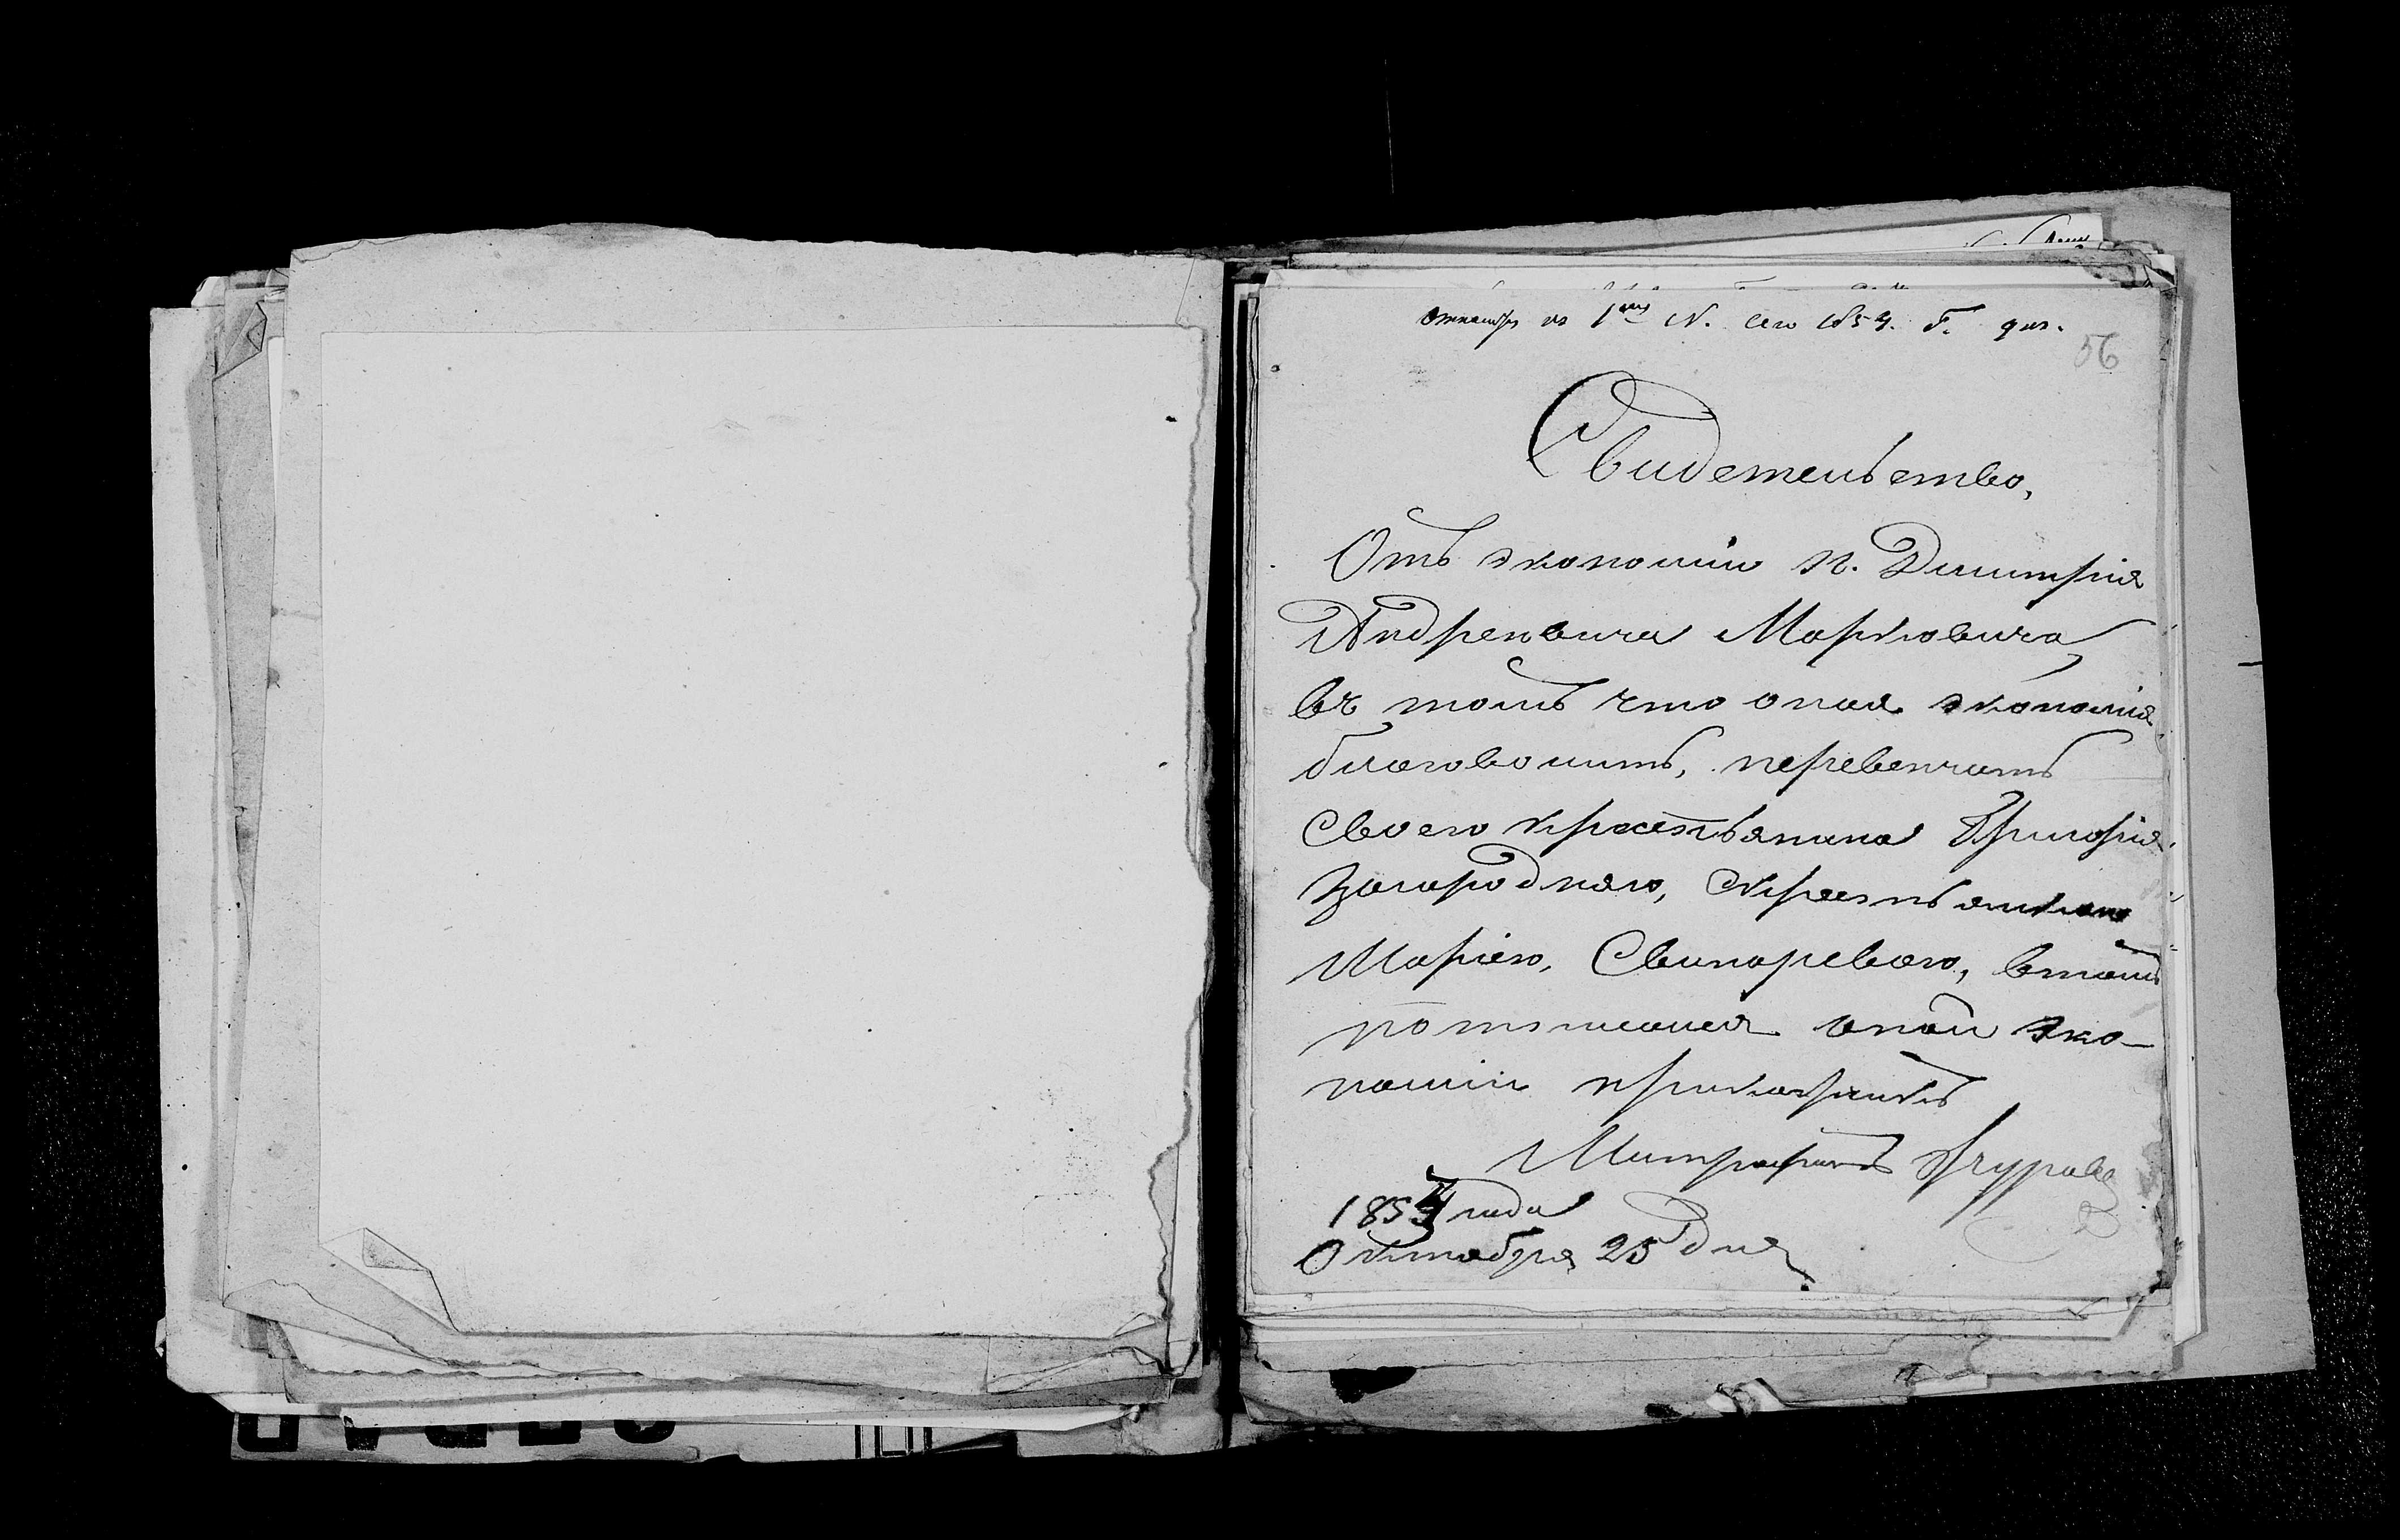 1854. Г.
56
Свидетельство,
Отъ экономіи П. Димитрія
Андреевича Марковича
въ томъ что оная экономія
благоволитъ, перевенчать
Своего крестьянина Григорія
Загороднаго, Скрестьянкою
Маріею, Свинаревою, втомъ
оной эко-
номіи прикащикъ
Митрофанъ
1854 года
Октября 25 Дня